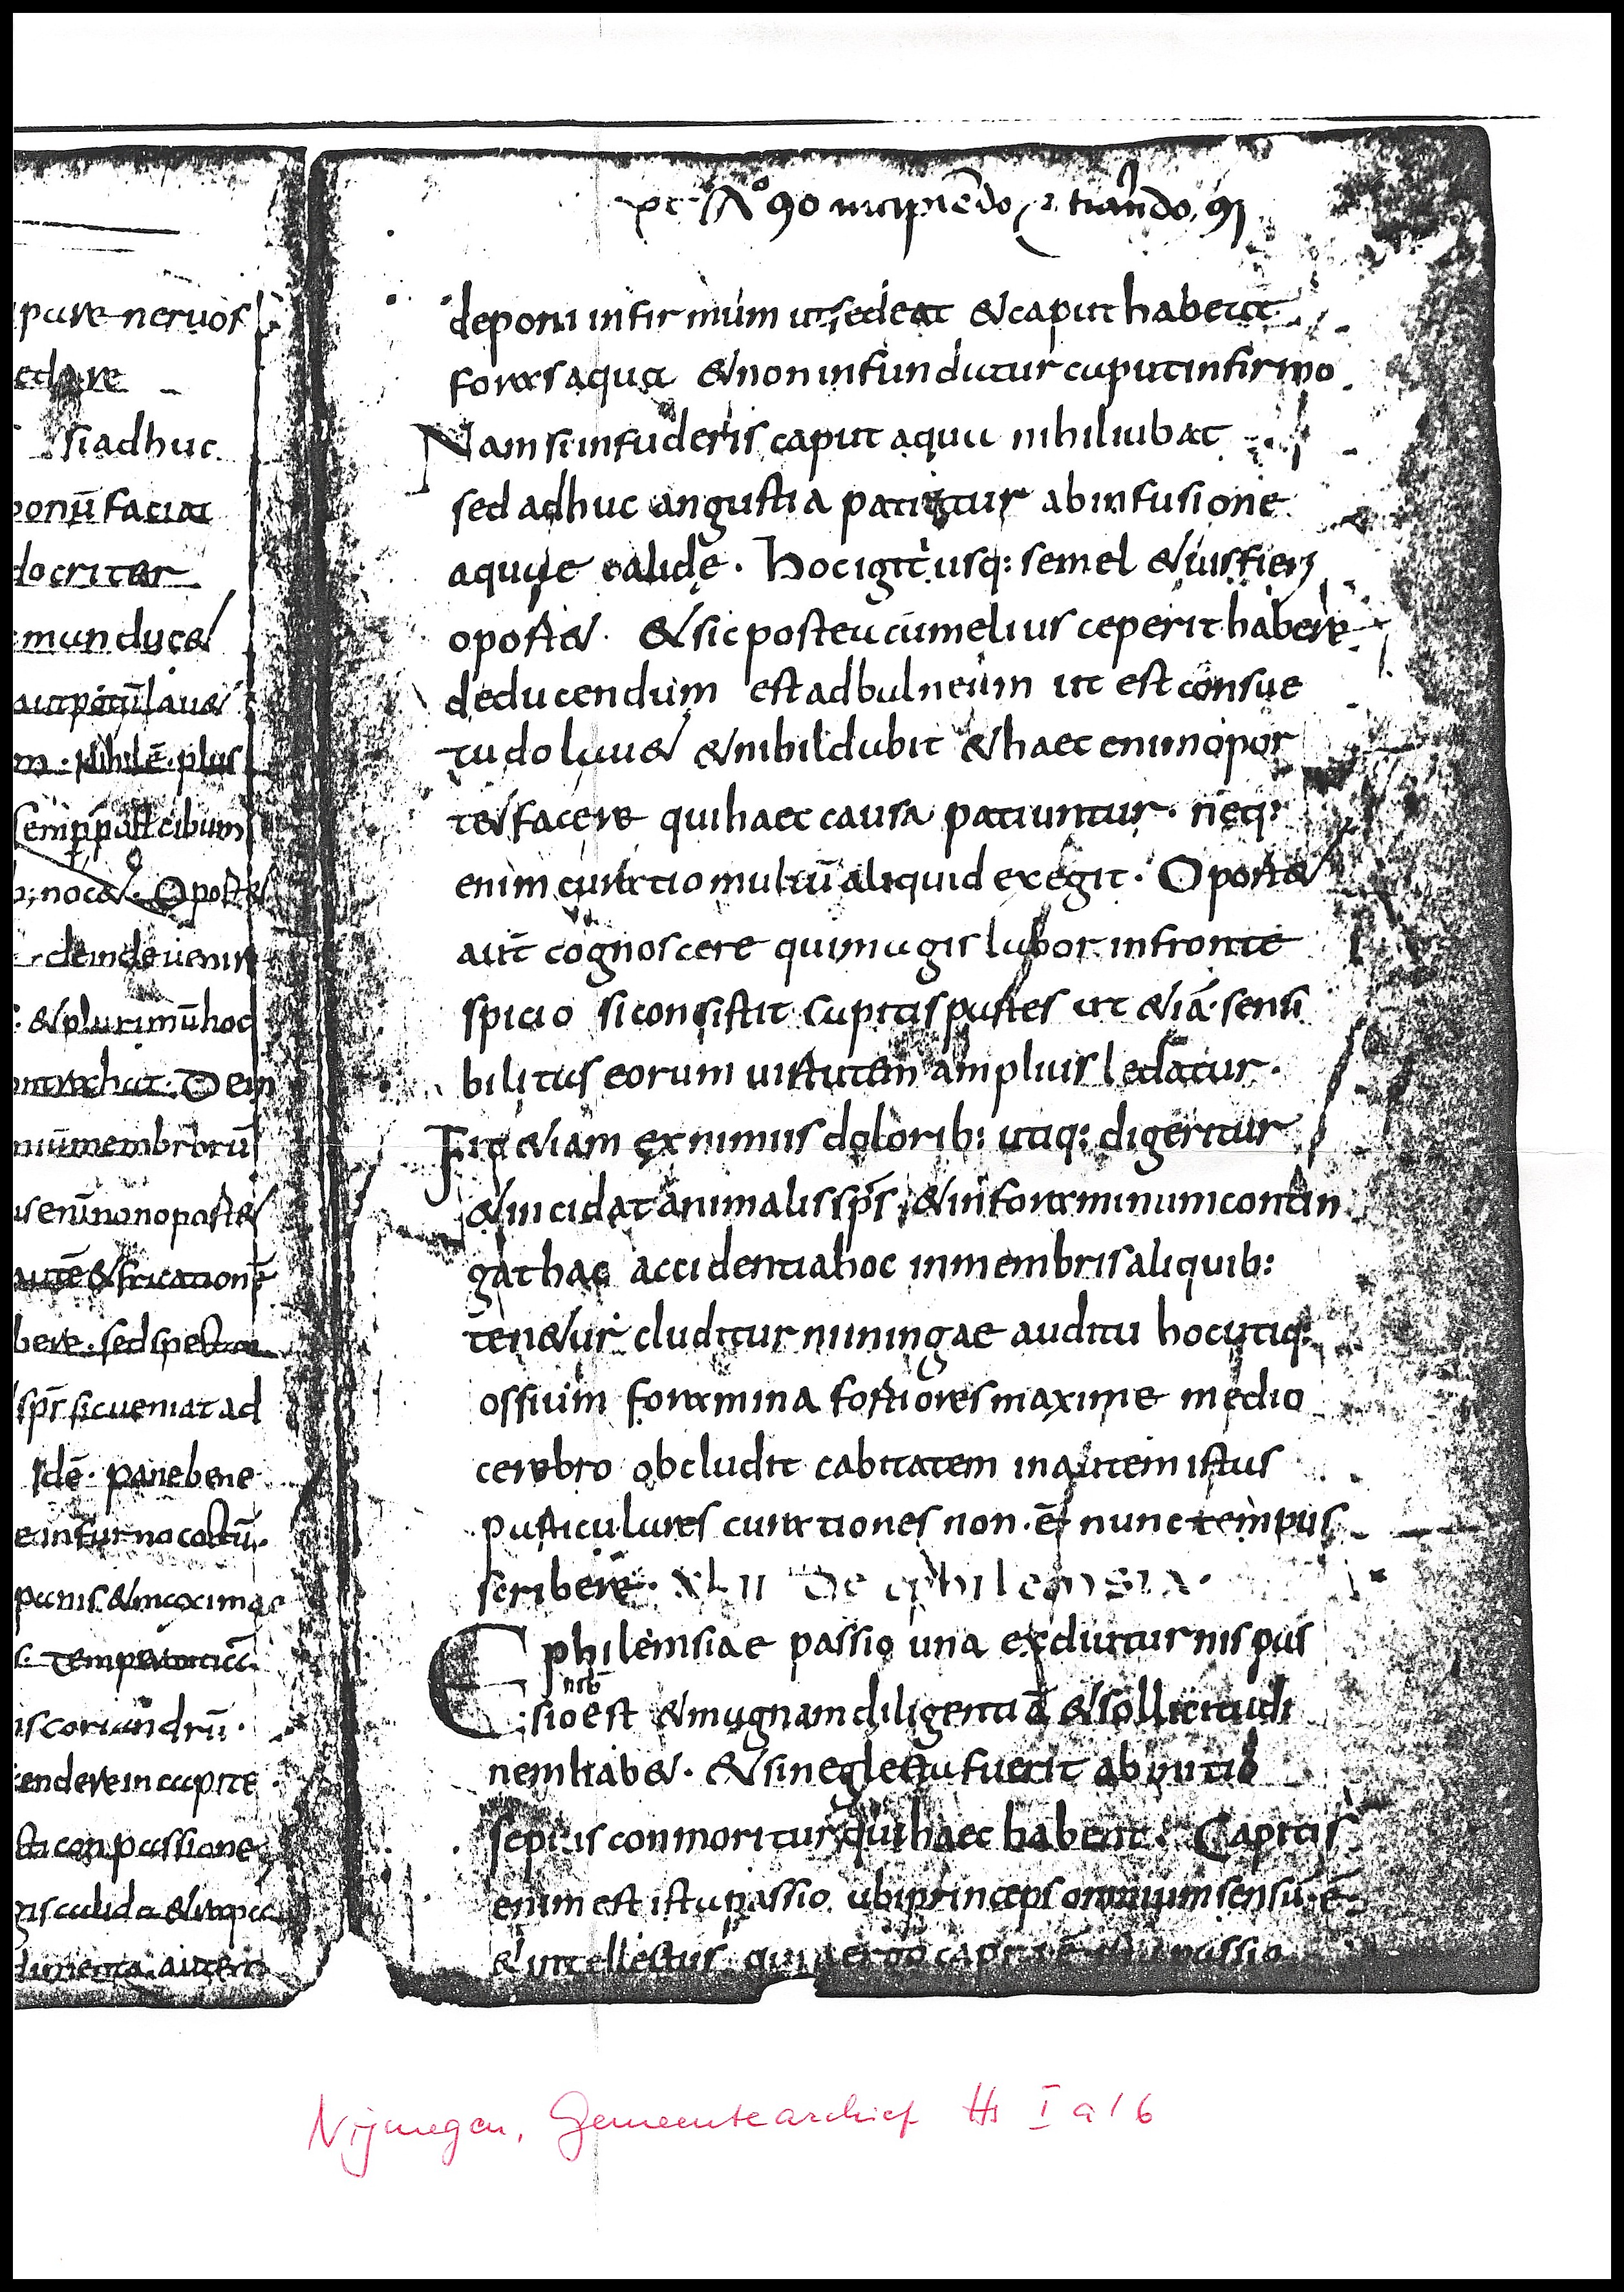 pure nervos
edare
si adhuc
bonū faciat
docriter
munducet
aut patulauet
m. Nihil ē. plus
semp pult cibum
b; nocet. Oportet
deinde uenire
& plurimū hoc
ontrahat. Dein
niū membrorū
us enī non oportet
autē & fricationē
bere. sed spectan
sp̄s sic ueniat ad
idē. pane bene
e in furno coctū.
panis. & maxima
s. Temperantia
is coriandrū.
endere in capite
sta con passione
gis calida & unqua
dumenta. autem
Aº 90 incipiēdo
deponi infirmum ut sedeat & caput habeat
foras aqua & non infundatur caput infirmo
Nam si infuderis caput aqua nihil iubat
sed adhuc angustia patigtur ab infusione
aquae calide. hoc igit usq: semel & uis fieri
oportet. & sic postea cum melius ceperit habere
deducendum est ad balneum ut est consue
tudo lauet & nihil dubit & haec enim opor
tet facere qui haec causa patiuntur. neq:
enim curatio multū aliquid exegit. Oportet
aut̄ cognoscere qui magis labor in fronte
spicio si consistit capitis partes ut & iā. sensi
bilitas eorum uirtutem amplius ledatur.
Fit etiam ex nimiis dolorib: utiq: digeritur
& incidat animalis sp̄s, & in foraminum contin
gat hac accidentia hoc in membris aliquib:
tenetur cluditur miningae auditu hoc utiq:
ossium foramina fortiores maxime medio
cerebro obcludit cabitatem in autem istas
particulares curationes non. ē. nunc tempus
scribere. XLII De ephilempsia.
Ephilemsiae passio una ex diuturnis pas
sio est & magnam diligentiā & sollicitudi
nem habet. & si neglectu fuerit ab initio
sepius conmoritur qui haec habent. Capitis
enim est ista passio. ubi princeps omnium sensū. ē.
& intellectus quia ergo capitis passio
Nijmegen, Gemeentearchief Hs I a 16